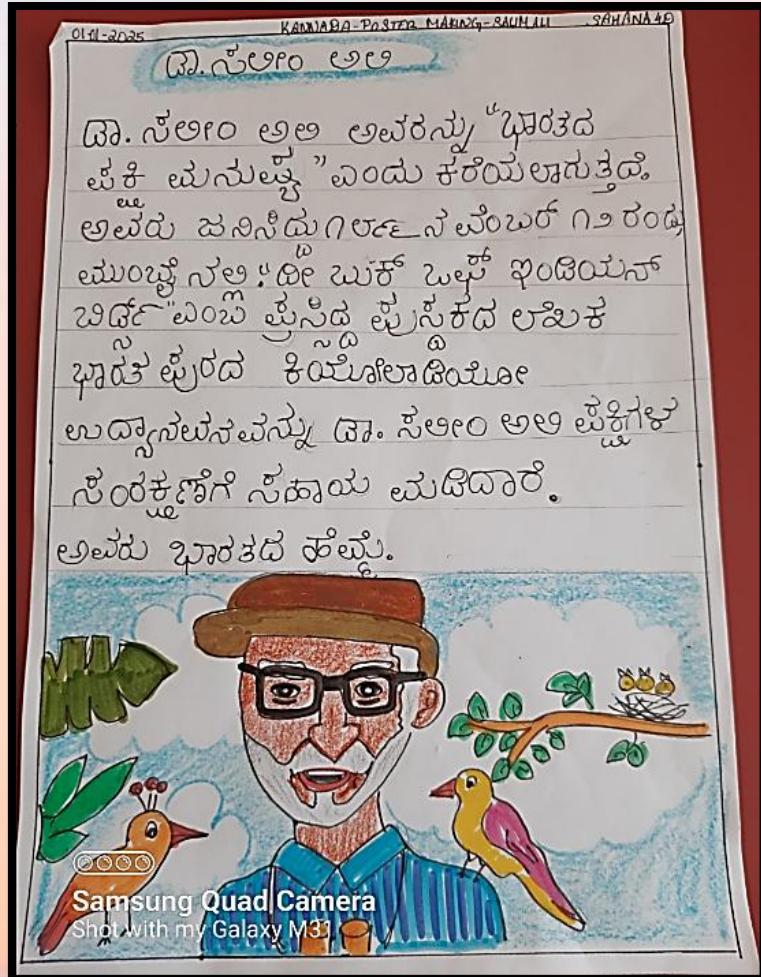 01-11-2025 KANNADA-POSTER MAKING-SALIM ALI SAHANA 4D
ಡಾ. ಸಲೀಂ ಅಲಿ
ಡಾ. ಸಲೀಂ ಅಲಿ ಅವರನ್ನು "ಭಾರತದ
ಪಕ್ಷಿ ಮನುಷ್ಯ" ಎಂದು ಕರೆಯಲಾಗುತ್ತದೆ.
ಅವರು ಜನಿಸಿದ್ದು ೧೮೯೬ ನವೆಂಬರ್ ೧೨ ರಂದು,
ಮುಂಬೈ ನಲ್ಲಿ. "ದೀ ಬುಕ್ ಒಫ್ ಇಂಡಿಯನ್
ಬರ್ಡ್ಸ್" ಎಂಬ ಪ್ರಸಿದ್ಧ ಪುಸ್ತಕದ ಲೇಖಕ
ಭಾರತ ಪುರದ ಕಿಯೋಲಾಡಿಯೋ
ಉದ್ಯಾನವನವನ್ನು ಡಾ. ಸಲೀಂ ಅಲಿ ಪಕ್ಷಿಗಳ
ಸಂರಕ್ಷಣೆಗೆ ಸಹಾಯ ಮಡಿದಾರೆ.
ಅವರು ಭಾರತದ ಹೆಮ್ಮೆ.
Samsung Quad Camera
Shot with my Galaxy M31